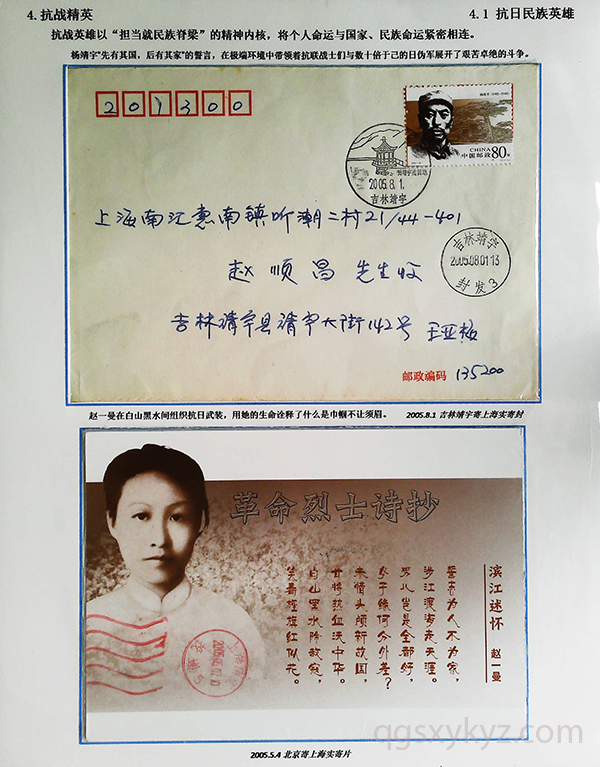 4. 抗战精英
4.1 抗日民族英雄
抗战英雄以“担当就民族脊梁”的精神内核，将个人命运与国家、民族命运紧密相连。
杨靖宇“先有其国，后有其家”的誓言，在极端环境中带领着抗联战士们与数十倍于己的日伪军展开了艰苦卓绝的斗争。
201300
CHINA
中国邮政 80分
2005.8.1.
吉林靖宇
上海南汇惠南镇听潮二村21/44-401
吉林靖宇
2005.08.01.13
封发3
赵顺昌 先生收
吉林靖宇县靖宇大街142号 王亚梅
邮政编码 135200
赵一曼在白山黑水间组织抗日武装，用她的生命诠释了什么是巾帼不让须眉。
2005.8.1 吉林靖宇寄上海实寄封
革命烈士诗抄
滨江述怀
赵一曼
誓志为人不为家，
涉江渡海走天涯。
男儿岂是全都好，
女子缘何分外差？
未惜头颅新故国，
甘将热血沃中华。
白山黑水除敌寇，
笑看旌旗红似花。
2005.5.4 北京寄上海实寄片
qgsxykyz.com